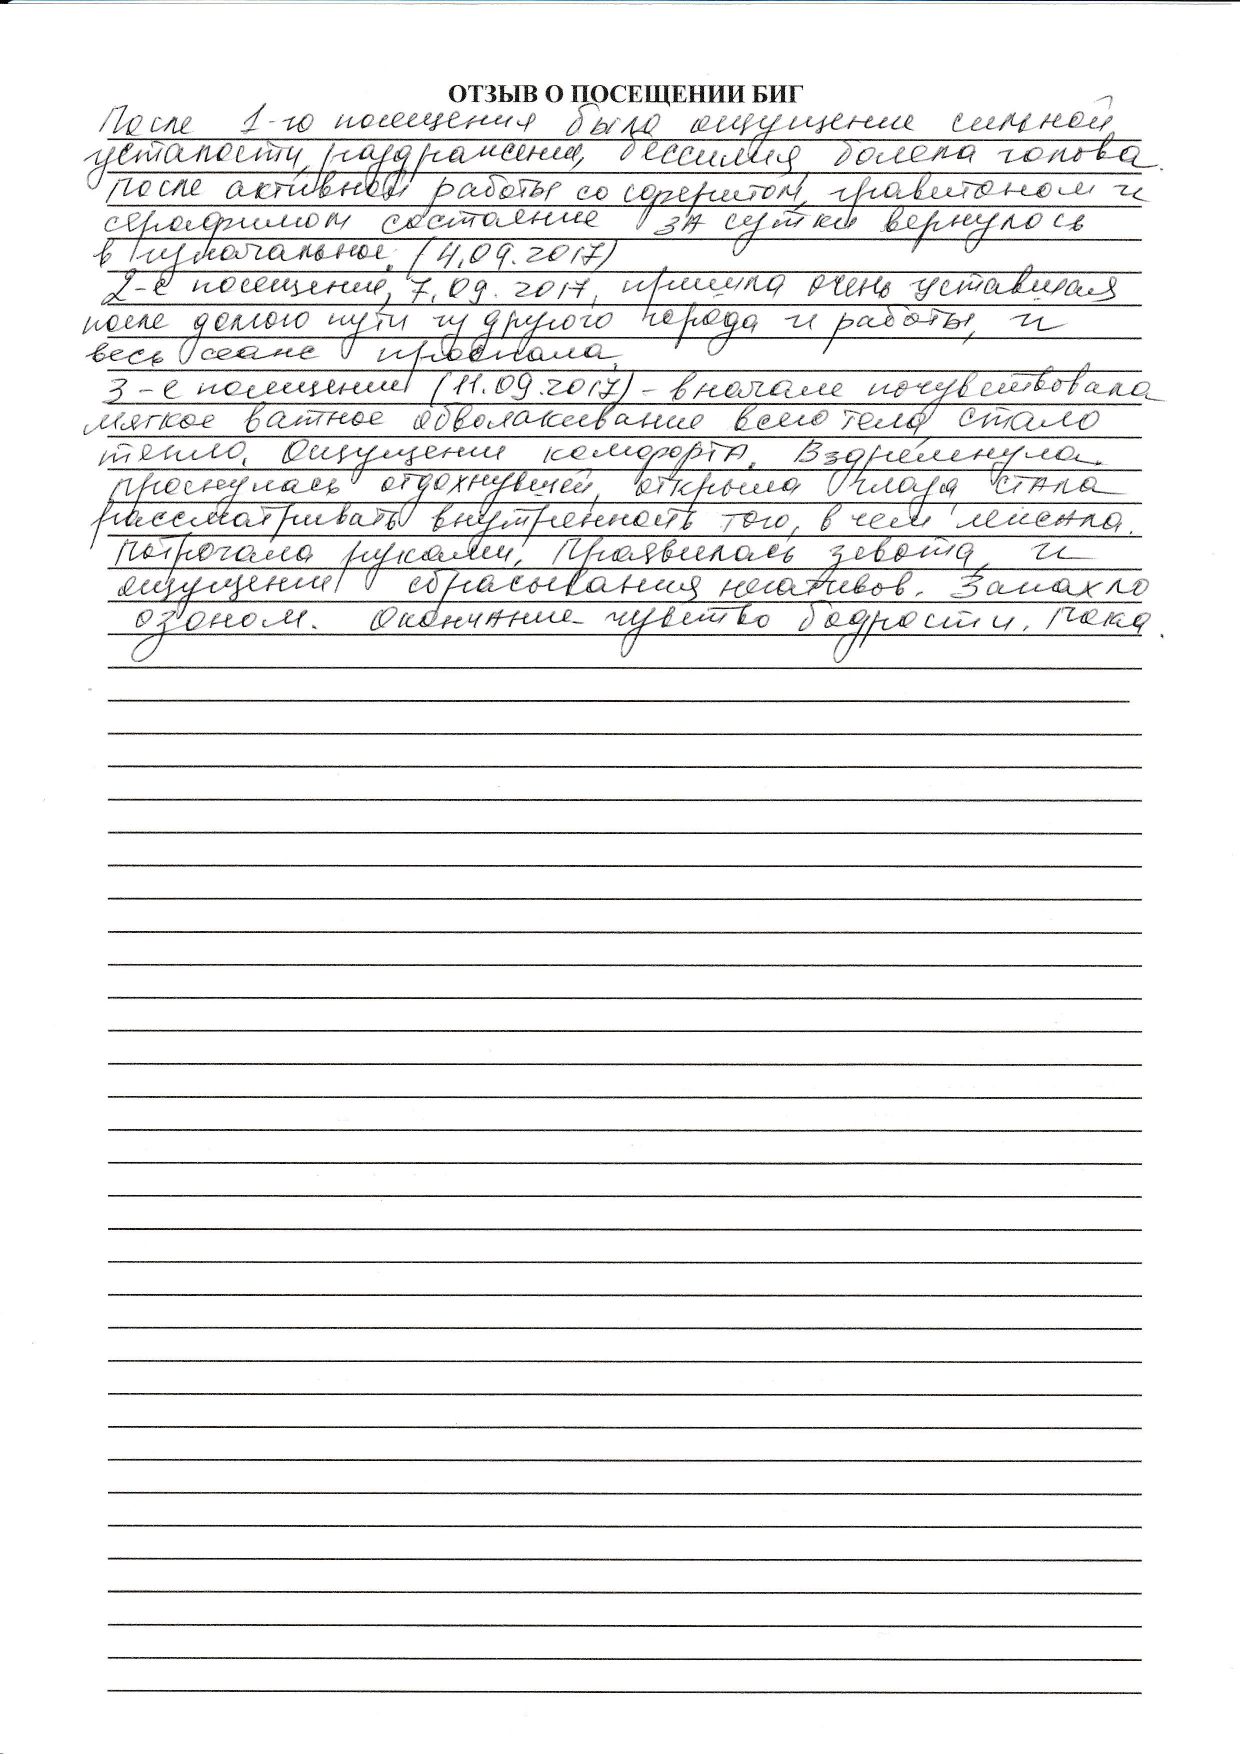 ОТЗЫВ О ПОСЕЩЕНИИ БИГ
После 1-го посещения было ощущение сильной
усталости, раздражения, бессилия, болела голова.
После активной работы со сферитом, гравитоном и
серафимом состояние за сутки вернулось
в изначальное. (4.09.2017)
2-е посещение, 7.09.2017, пришла очень уставшая
после долгого пути из другого города и работы, и
весь сеанс проспала.
3-е посещение (11.09.2017) - вначале почувствовала
мягкое ватное обволакивание всего тела, стало
тепло. Ощущение комфорта. Вздремнула.
Проснулась отдохнувшей, открыла глаза, стала
рассматривать внутренность того, в чем лежала.
Потрогала руками. Проявилась зевота, и
ощущение сбрасывания негативов. Запахло
озоном. Окончание - чувство бодрости. Пока.